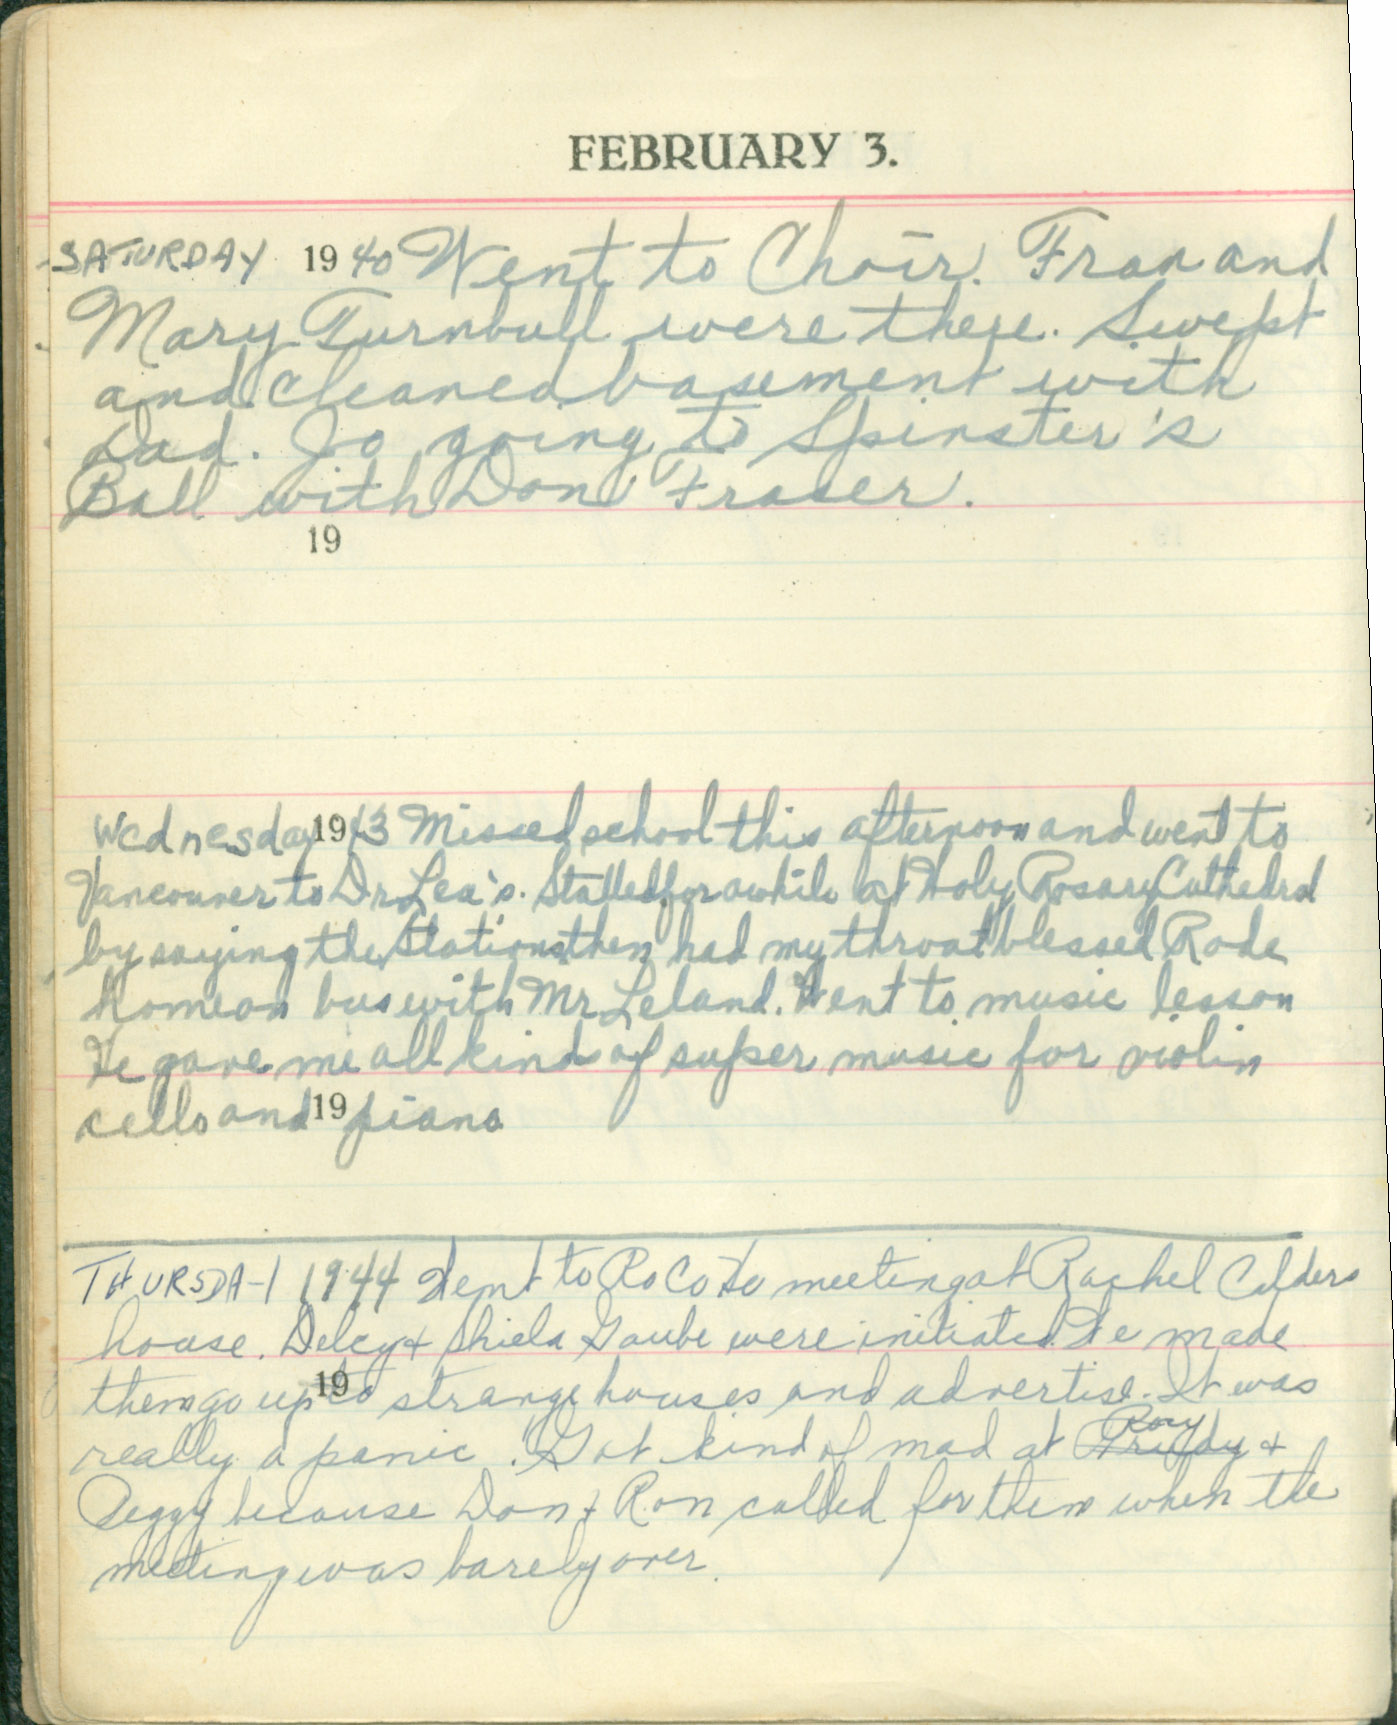 FEBRUARY 3.
SATURDAY 1940 Went to Choir. Fran and
Mary Turnbull were there. Swept
and cleaned basement with
Dad. Jo going to Spinster's
Ball with Don Fraser.
19
Wednesday 1943 Missed school this afternoon and went to
Vancouver to Dr Lea's. Stalled for awhile at Holy Rosary Cathedral
by saying the Stations then had my throat blessed Rode
home on bus with Mr Leland. Went to music lesson
He gave me all kinds of super music for violin
cello and 19 piano
THURSDAY 1944 Went to Ro Co To meeting at Rachel Calders
house. Delcy & Shiela Gaube were initiated. We made
them go up to 19 strange houses and advertise. It was
really a panic. Got kind of mad at Rory &
Peggy because Don & Ron called for them when the
meeting was barely over.